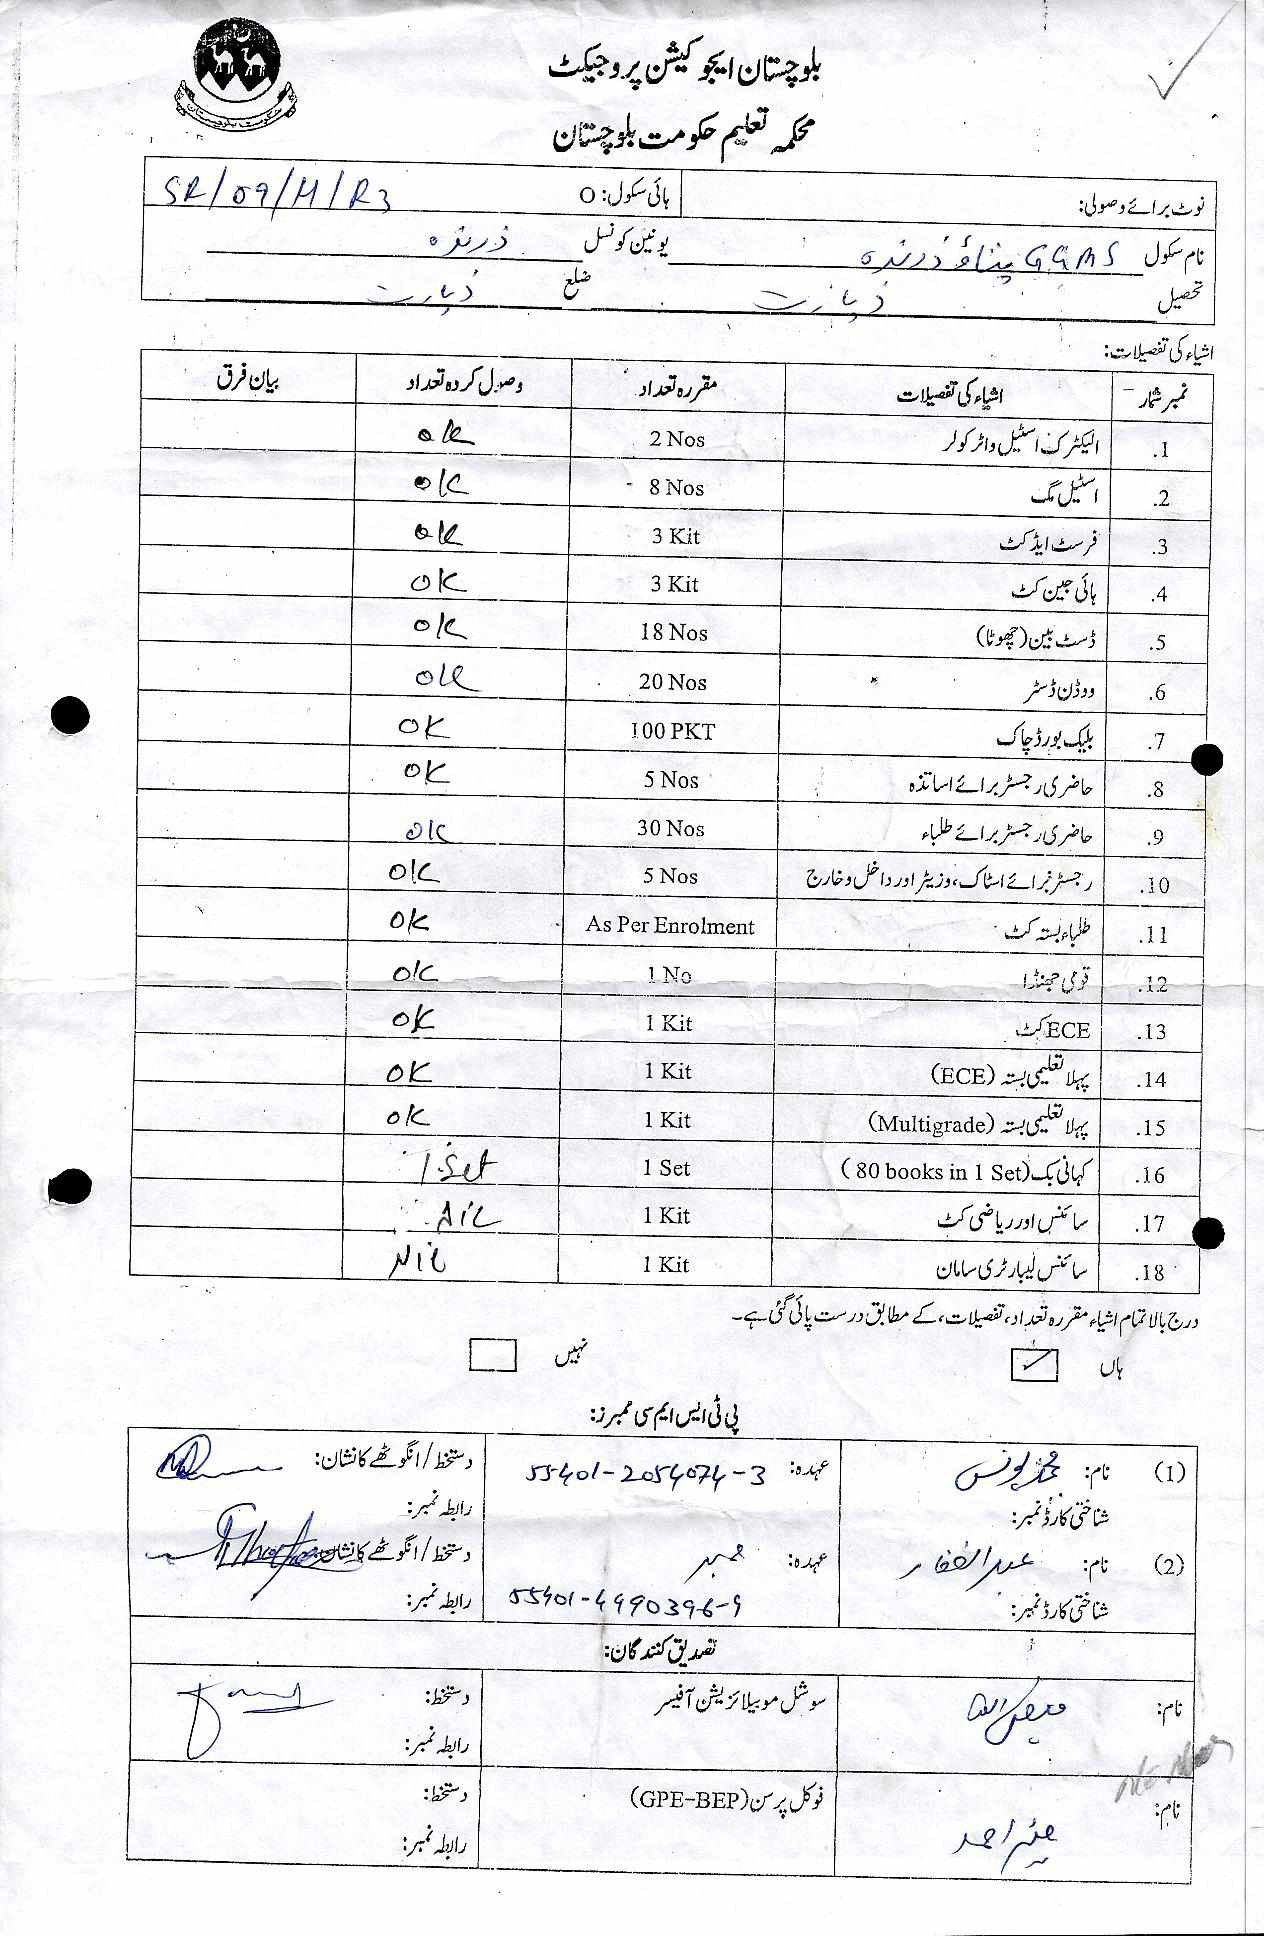 بلوچستان ایجوکیشن پروجیکٹ
محکمہ تعلیم حکومت بلوچستان
نوٹ برائے وصولی: ہائی سکول: O SR/09/H/R3
نام سکول GGMS یونین کونسل
تحصیل زیارت ضلع زیارت
اشیاء کی تفصیلات:
نمبر شمار اشیاء کی تفصیلات مقررہ تعداد وصول کردہ تعداد بیان فرق
1. الیکٹرک اسٹیل واٹر کولر 2 Nos OK
2. اسٹیل مگ 8 Nos OK
3. فرسٹ ایڈ کٹ 3 Kit OK
4. ہائی جین کٹ 3 Kit OK
5. ڈسٹ بین (چھوٹا) 18 Nos OK
6. ووڈن ڈسٹر 20 Nos OK
7. بلیک بورڈ چاک 100 PKT OK
8. حاضری رجسٹر برائے اساتذہ 5 Nos OK
9. حاضری رجسٹر برائے طلباء 30 Nos OK
10. رجسٹرز برائے اسٹاک، وزیٹر اور داخل و خارج 5 Nos OK
11. طلباء بستہ کٹ As Per Enrolment OK
12. قومی جھنڈا 1 No OK
13. ECE کٹ 1 Kit OK
14. پہلا تعلیمی بستہ (ECE) 1 Kit OK
15. پہلا تعلیمی بستہ (Multigrade) 1 Kit OK
16. کہانی بک (80 books in 1 Set) 1 Set 1 Set
17. سائنس اور ریاضی کٹ 1 Kit Nil
18. سائنس لیبارٹری سامان 1 Kit Nil
درج بالا تمام اشیاء مقررہ تعداد، تفصیلات، کے مطابق درست پائی گئی ہے۔
ہاں نہیں
پی ٹی ایس ایم سی ممبرز:
(1) نام: محمد یونس عہدہ: 55401-2054074-3 دستخط/انگوٹھے کا نشان:
شناختی کارڈ نمبر: رابطہ نمبر:
(2) نام: عبدالغفار عہدہ: ممبر دستخط/انگوٹھے کا نشان:
شناختی کارڈ نمبر: 55401-4990396-9 رابطہ نمبر:
تصدیق کنندگان:
نام: سوشل موبیلائزیشن آفیسر دستخط:
رابطہ نمبر:
نام: فوکل پرسن (GPE-BEP) دستخط:
رابطہ نمبر: